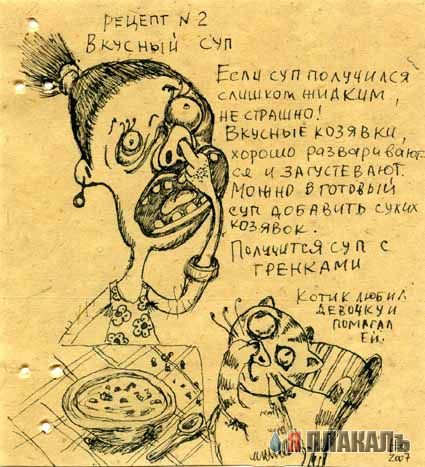 РЕЦЕПТ N 2
ВКУСНЫЙ СУП
ЕСЛИ СУП ПОЛУЧИЛСЯ
СЛИШКОМ ЖИДКИМ,
НЕ СТРАШНО!
ВКУСНЫЕ КОЗЯВКИ,
ХОРОШО РАЗВАРИВАЮТ-
СЯ И ЗАГУСТЕВАЮТ.
МОЖНО В ГОТОВЫЙ
СУП ДОБАВИТЬ СУХИХ
КОЗЯВОК.
ПОЛУЧИТСЯ СУП С
ГРЕНКАМИ
КОТИК ЛЮБИЛ
ДЕВОЧКУ И
ПОМАГАЛ
ЕЙ.
Я ПЛАКАЛЪ
2007